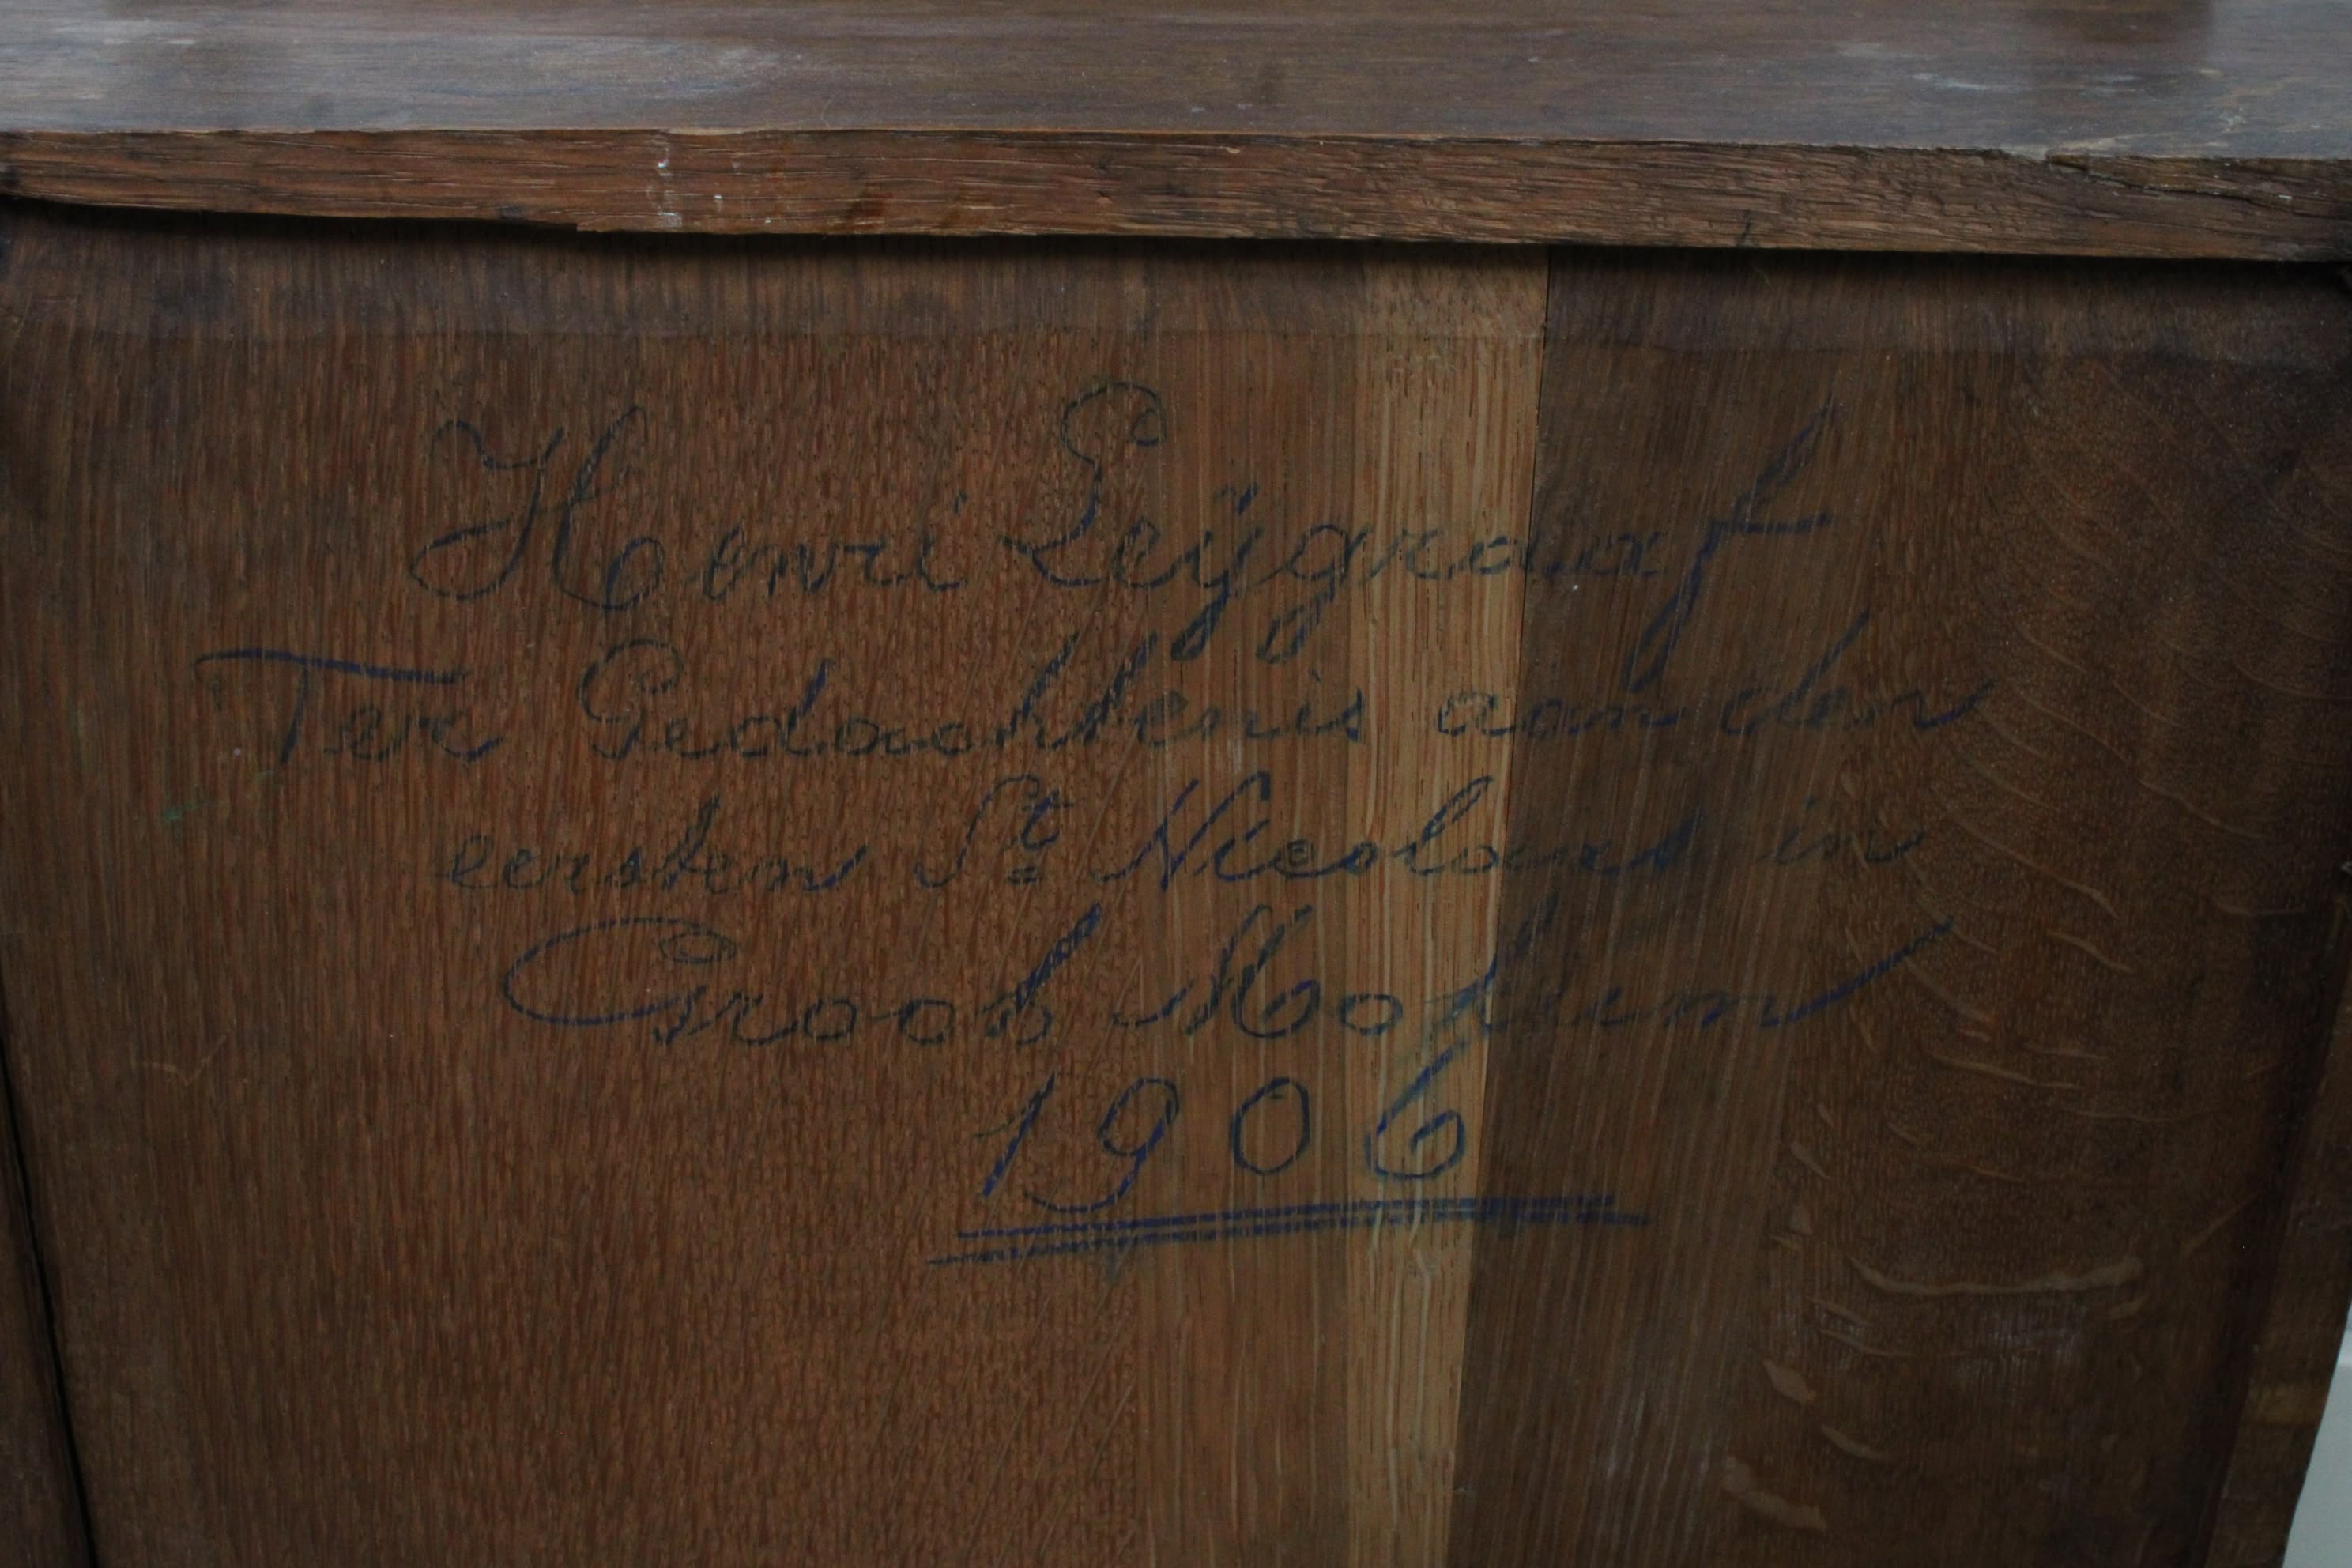 Henri Leÿgraaf
Ter Gedachtenis aan den
eersten St. Nicolaas in
Groot Mokum
1906